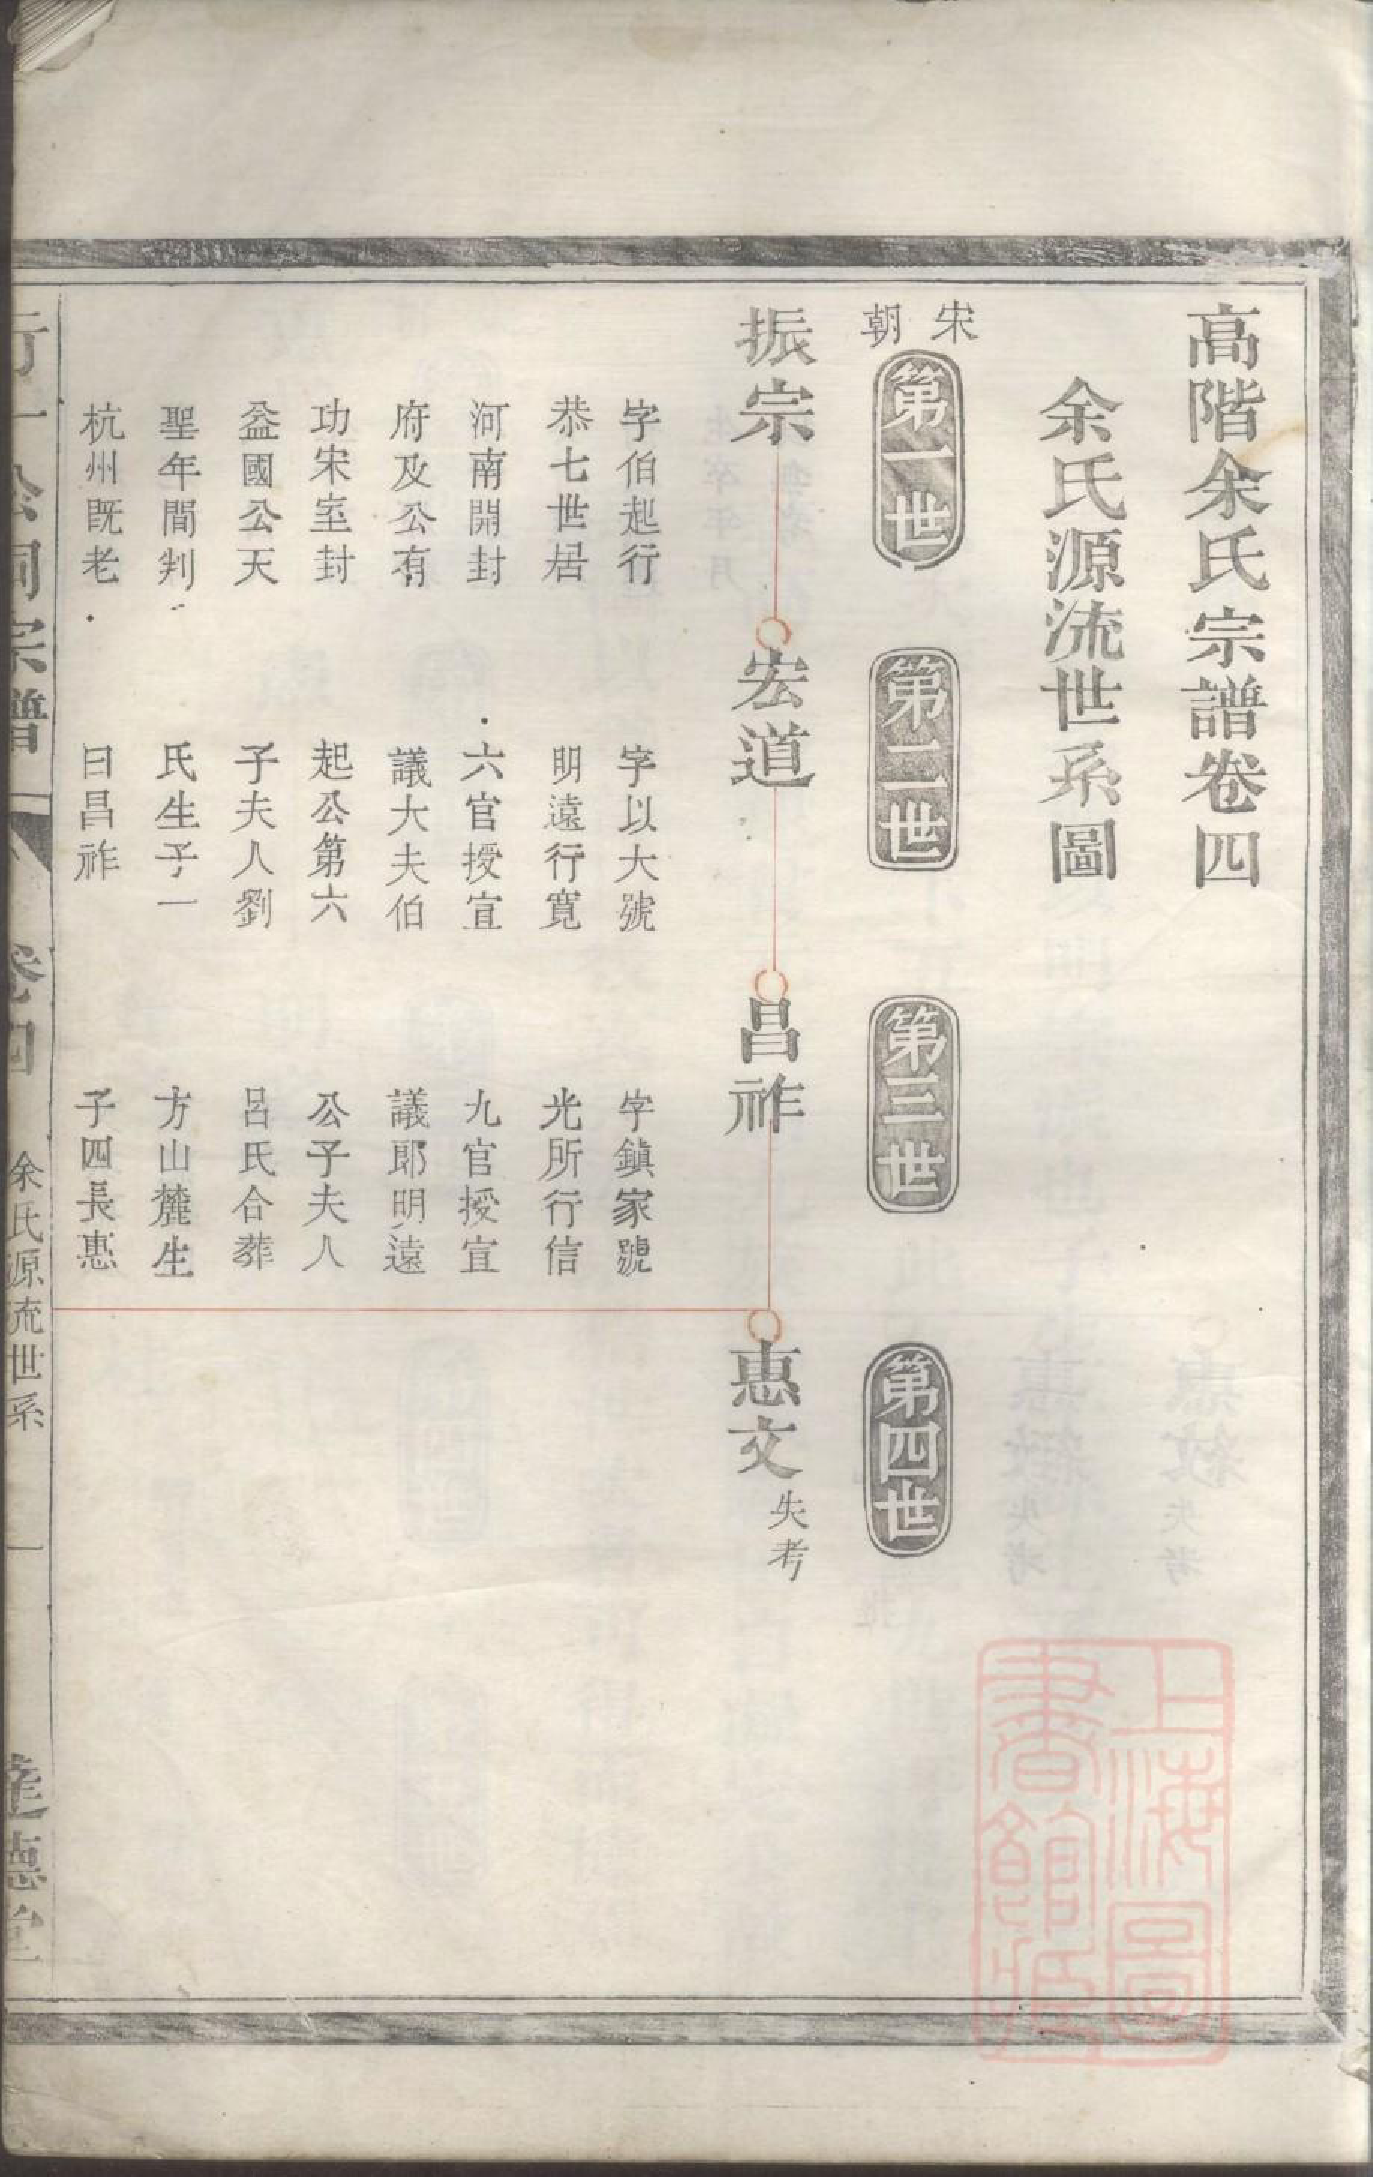 高階余氏宗譜卷四
余氏源流世系圖
宋朝
第一世
第二世
第三世
第四世
振宗
字伯起行
恭七世居
河南開封
府及公有
功宋室封
益國公天
聖年間判
杭州既老
宏道
字以大號
明遠行寬
六官授宣
議大夫伯
起公第六
子夫人劉
氏生子一
曰昌祚
昌祚
字鎮家號
光所行信
九官授宣
議郎明遠
公子夫人
呂氏合葬
方山麓生
子四長惠
惠文
失考
宗譜
卷四
余氏源流世系
一
達德堂
上海圖
書館藏